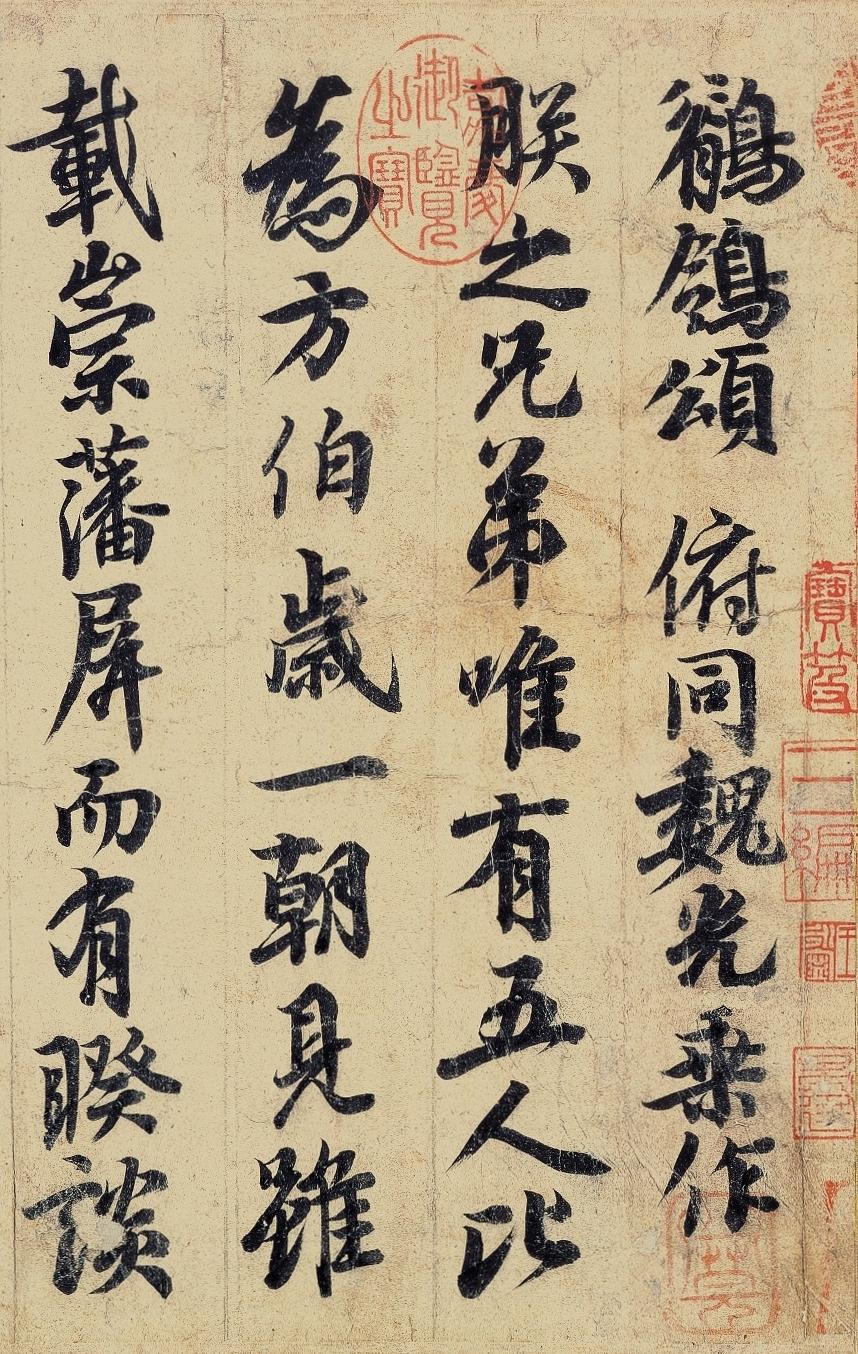 鶺鴒頌 俯同魏光乘作
朕之兄弟唯有五人比
為方伯歲一朝見雖
載崇藩屏而有睽談
嘉慶
御覽
之寶
寶笈
三編